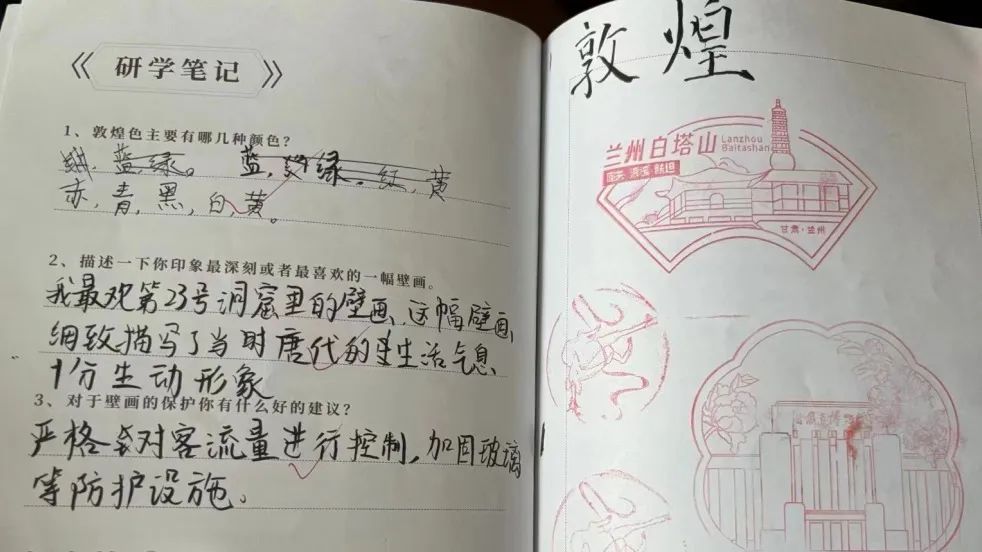 研学笔记
1、敦煌色主要有哪几种颜色?
蓝绿。 蓝, 绿, 红, 黄
赤,青,黑,白,黄。
2、描述一下你印象最深刻或者最喜欢的一幅壁画。
我最欢第23号洞窟里的壁画,这幅壁画
细致描写了当时唐代的生活气息
十分生动形象
3、对于壁画的保护你有什么好的建议?
严格对客流量进行控制,加固玻璃
等防护设施。
敦煌
兰州白塔山 Lanzhou
Baitashan
甘肃·兰州